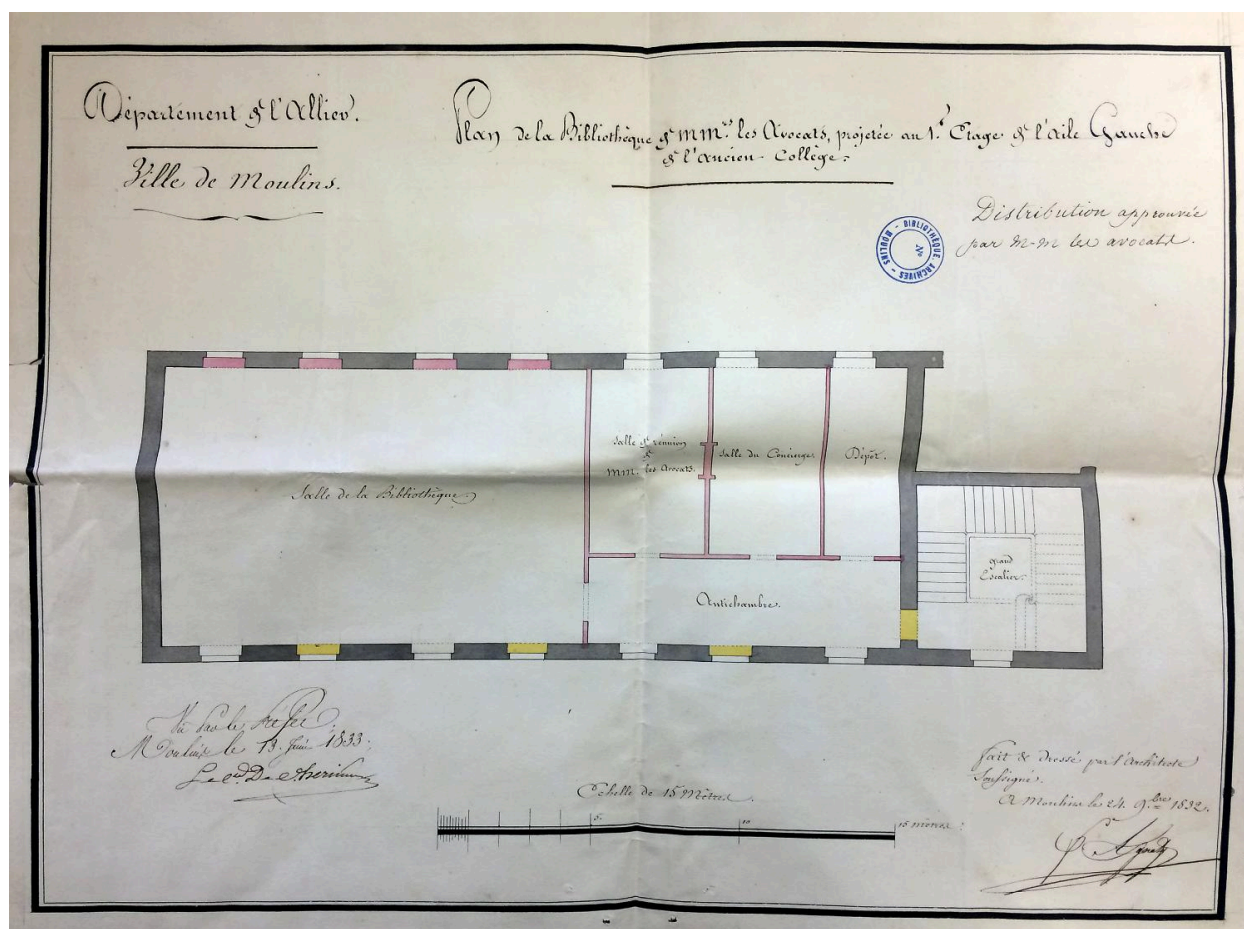 Département de l'Allier.
Ville de Moulins.
Plan de la Bibliothèque de MM.rs les Avocats, projetée au 1.er Etage de l'aile Gauche
de l'ancien Collège.
Distribution approuvée
par M-M les avocats.
BIBLIOTHÈQUE ARCHIVES - MOULINS -
No
Salle de la Bibliothèque.
Salle de réunion
de
MM. les Avocats.
Salle du Concierge.
Dépôt.
Antichambre.
grand
Escalier.
Vu par le Préfet
Moulins le 13. Juin 1833.
Echelle de 15 Mètres.
5.
10
15 mètres.
fait & dressé par l'Architecte
Soussigné.
A Moulins le 24. 9.bre 1832.